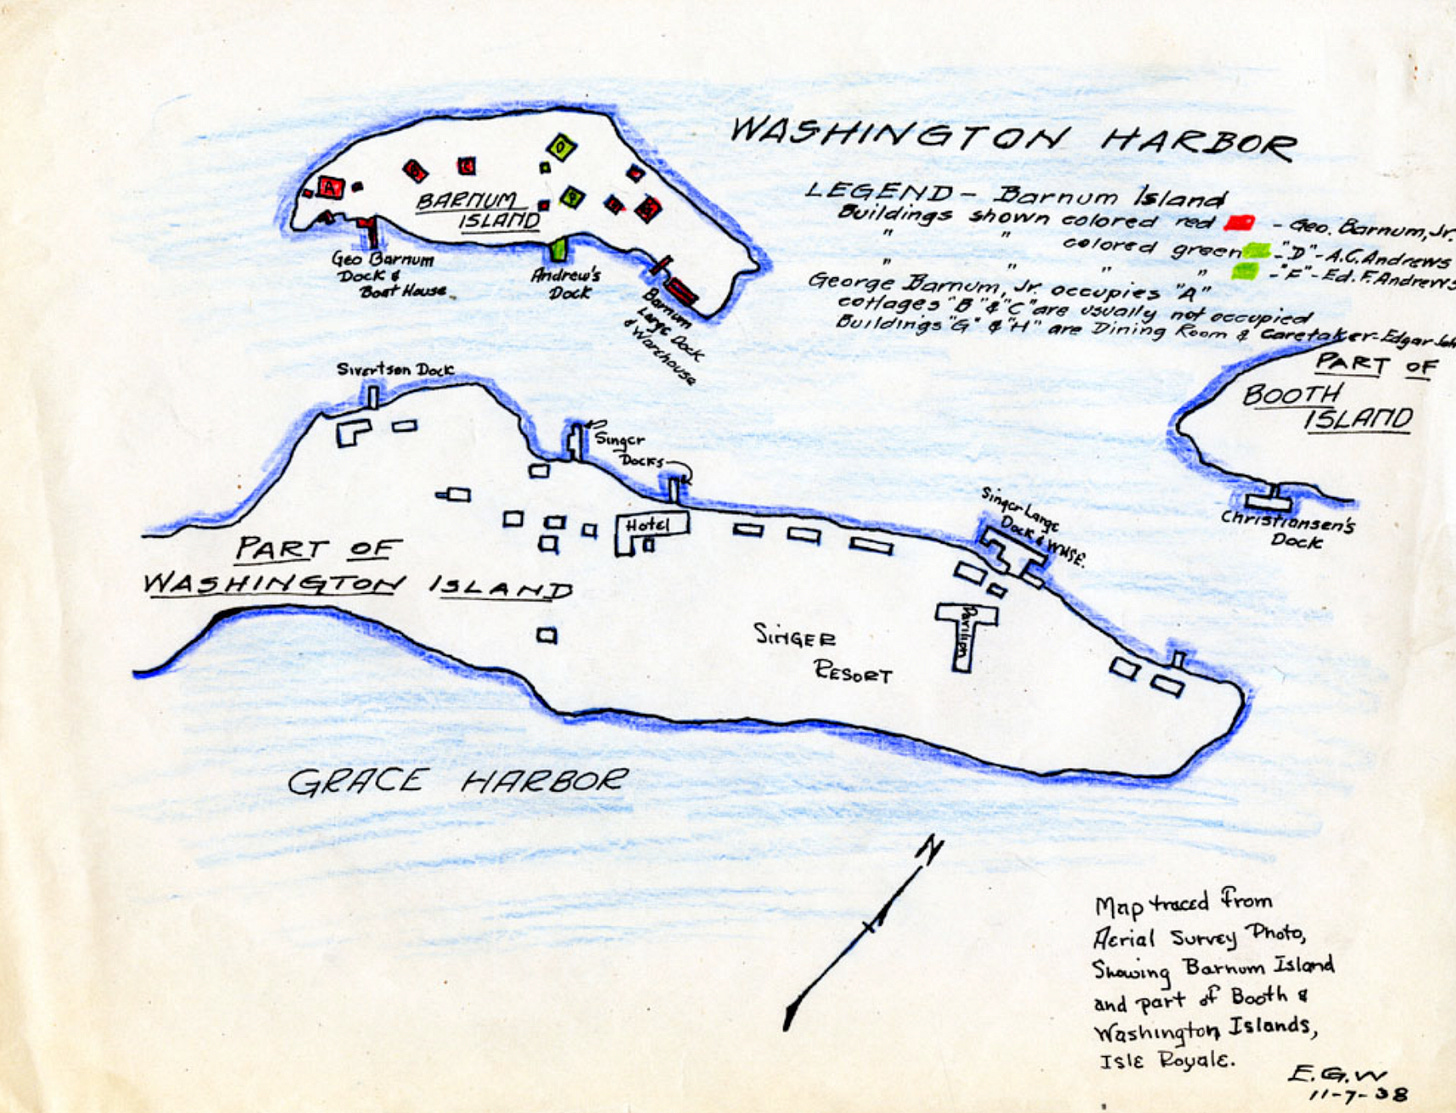 WASHINGTON HARBOR
LEGEND - Barnum Island
Buildings shown colored red - Geo. Barnum, Jr.
" " colored green - "D" - A.C. Andrews
" " " " - "F" - Ed. F. Andrews
George Barnum, Jr. occupies "A"
cottages "B" & "C" are usually not occupied
Buildings "G" & "H" are Dining Room & Caretaker - Edgar
A
C
D
BARNUM
ISLAND
Geo Barnum
Dock &
Boat House
Andrew's
Dock
Barnum
Large Dock
& Warehouse
PART OF
BOOTH
ISLAND
Sivertson Dock
Singer
Docks
Hotel
Singer Large
Dock & WHSE.
Christiansen's
Dock
PART OF
WASHINGTON ISLAND
Pavilion
SINGER
RESORT
GRACE HARBOR
N
Map traced from
Aerial Survey Photo,
Showing Barnum Island
and part of Booth &
Washington Islands,
Isle Royale.
E.G.W
11-7-38